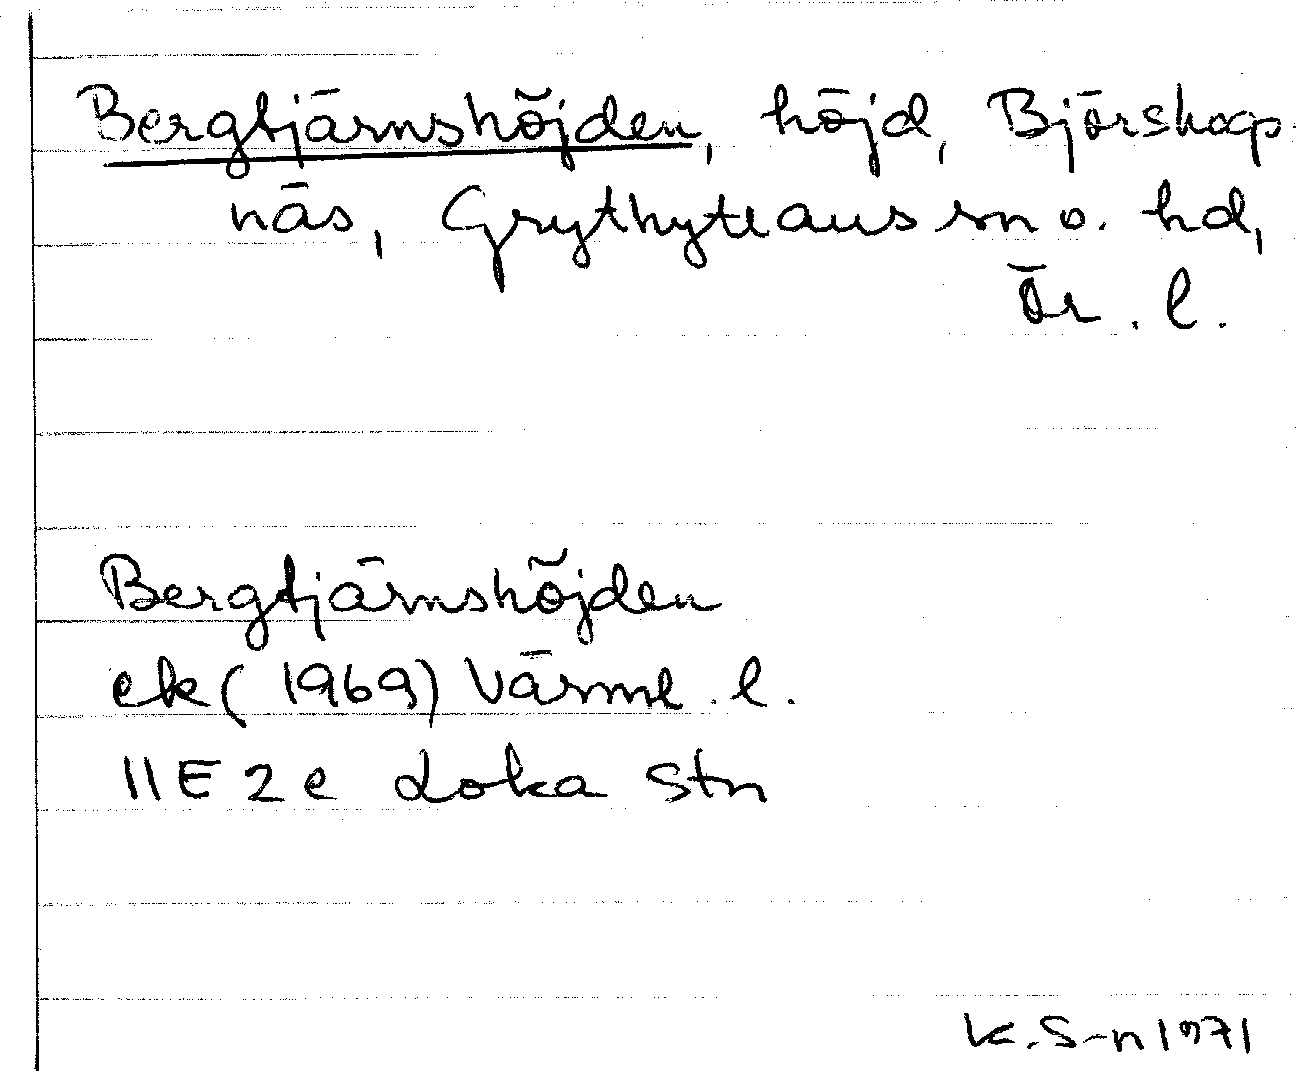 Bergtjärnshöjden, höjd, Björskogs-
näs, Grythytteans sn o. hd,
Ör. l.
Bergtjärnshöjden
ek (1969) Värml. l.
11E 2e Loka stn
K. S-n 1971